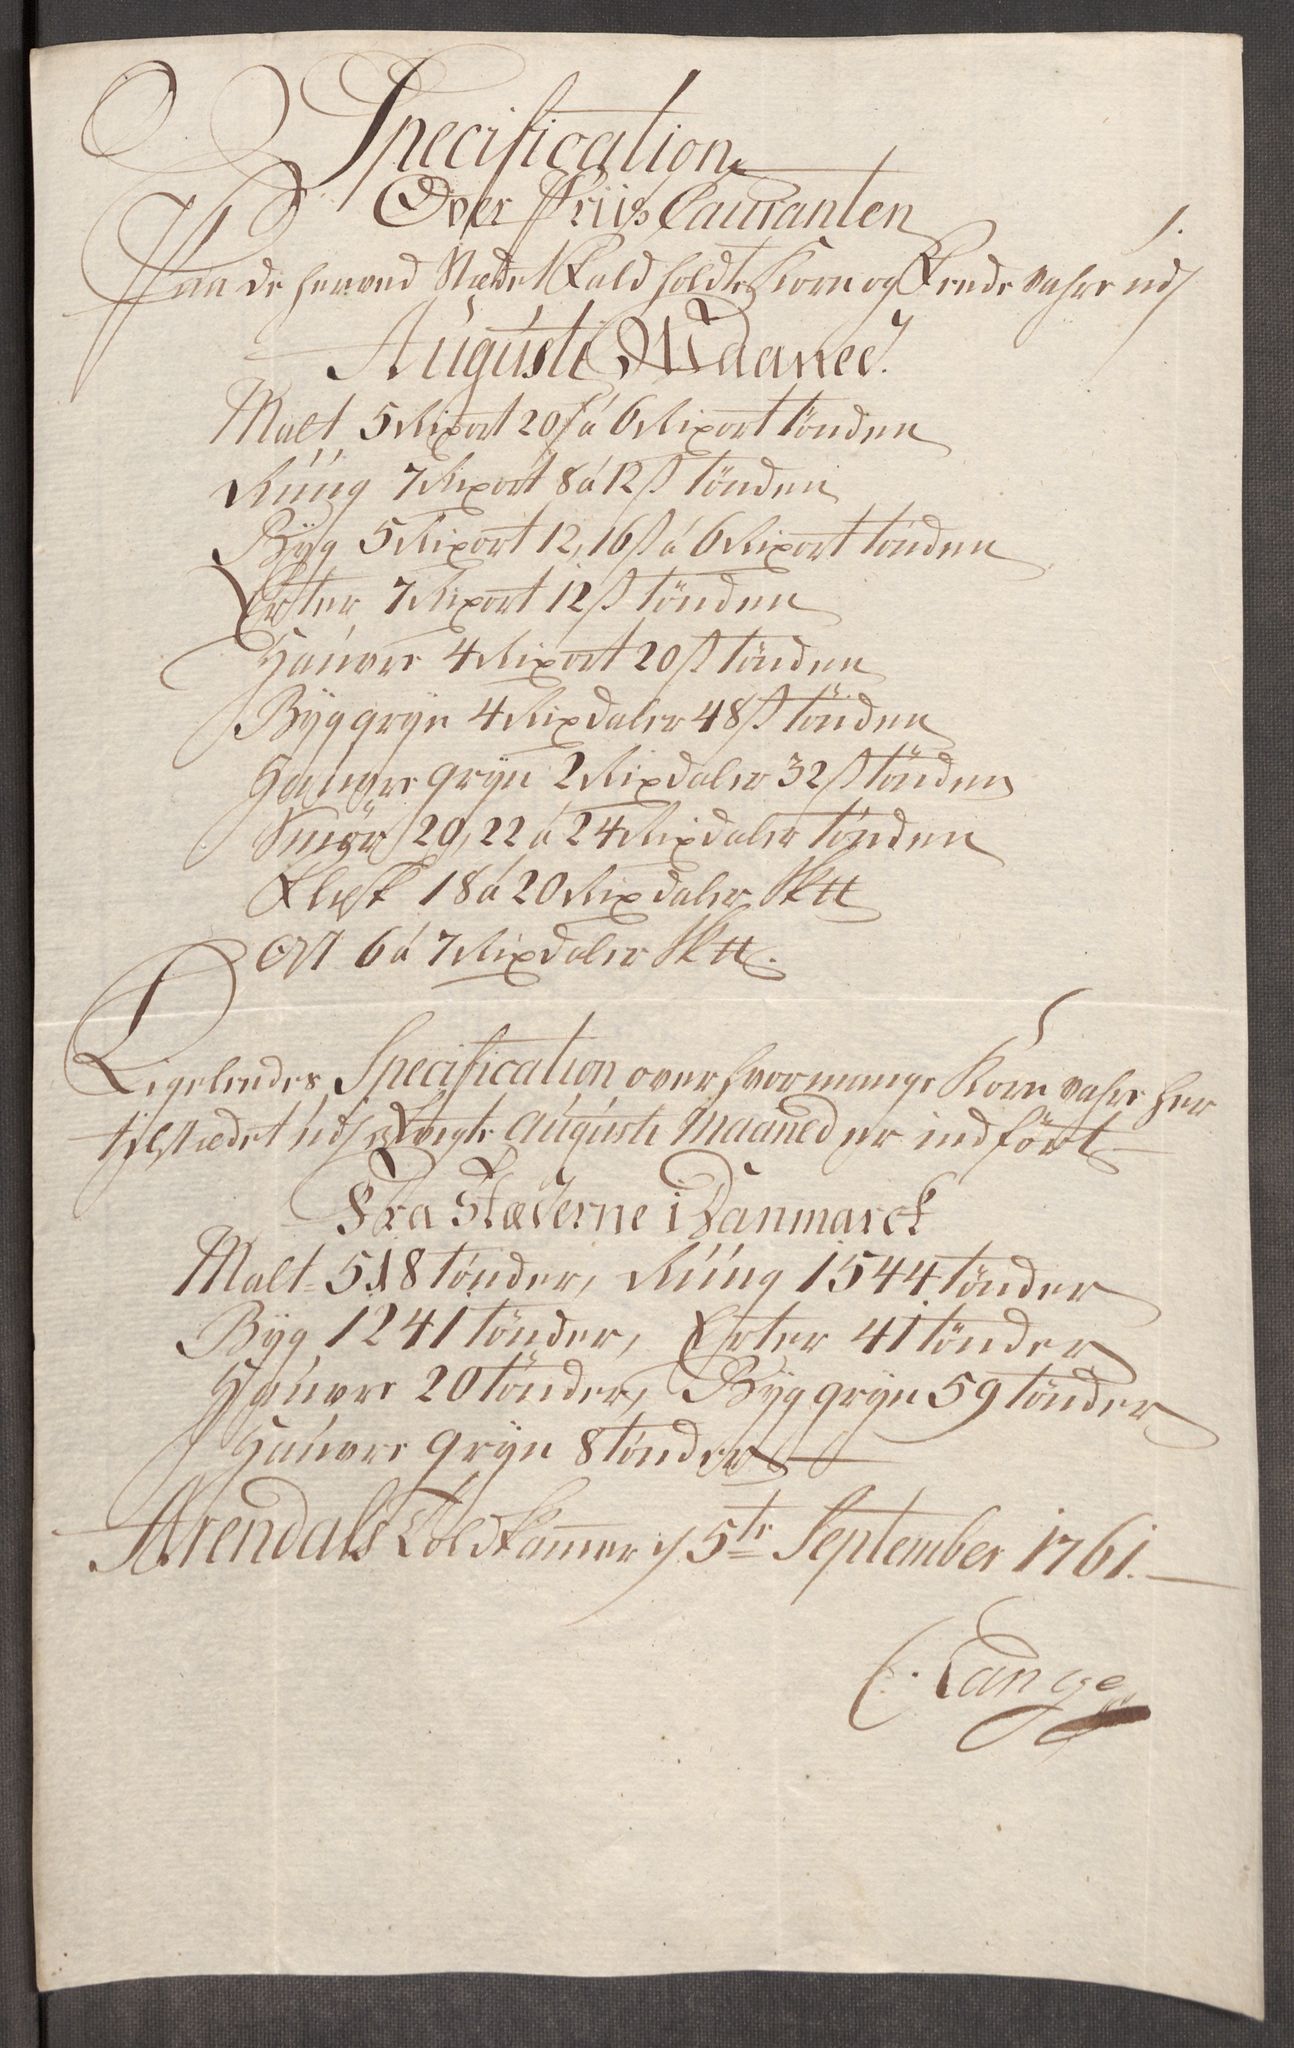 Specification
Over Priis Cauranten
Paa de her ved Stædet fald holdte Korn og Fede vahre udj
Augusti Maaned.
Malt 5 Rixort 20 ß á 6 Rixort tönden
Rúúg 7 Rixort 8 á 12 ß tönden
Byg 5 Rixort 12, 16 ß á 6 Rixort tönden
Erter 7 Rixort 12 ß tönden
Haúvre 4 Rixort 20 ß tönden
Byg gryn 4 Rixdaler 48 ß tönden
Haúvre gryn 2 Rixdaler 32 ß tönden
Smör 20, 22 á 24 Rixdaler tönden
Flesk 18 á 20 Rixdaler Sk℔
Ost 6 á 7 Rixdaler Sk℔.
Ligeledes Specification over hvormange Korn vahre her
til stædet údj Augústi Maaned er indfört
Fra Stæderne i Danmarck
Malt 518 tönder, Rúúg 1544 tönder
Byg 1241 tönder, Erter 41 tönder
Haúvre 20 tönder, Byg gryn 59 tönder
Haúvre gryn 8 tönder
Arendals Toldkammer d 5te September 1761.
C. Lange